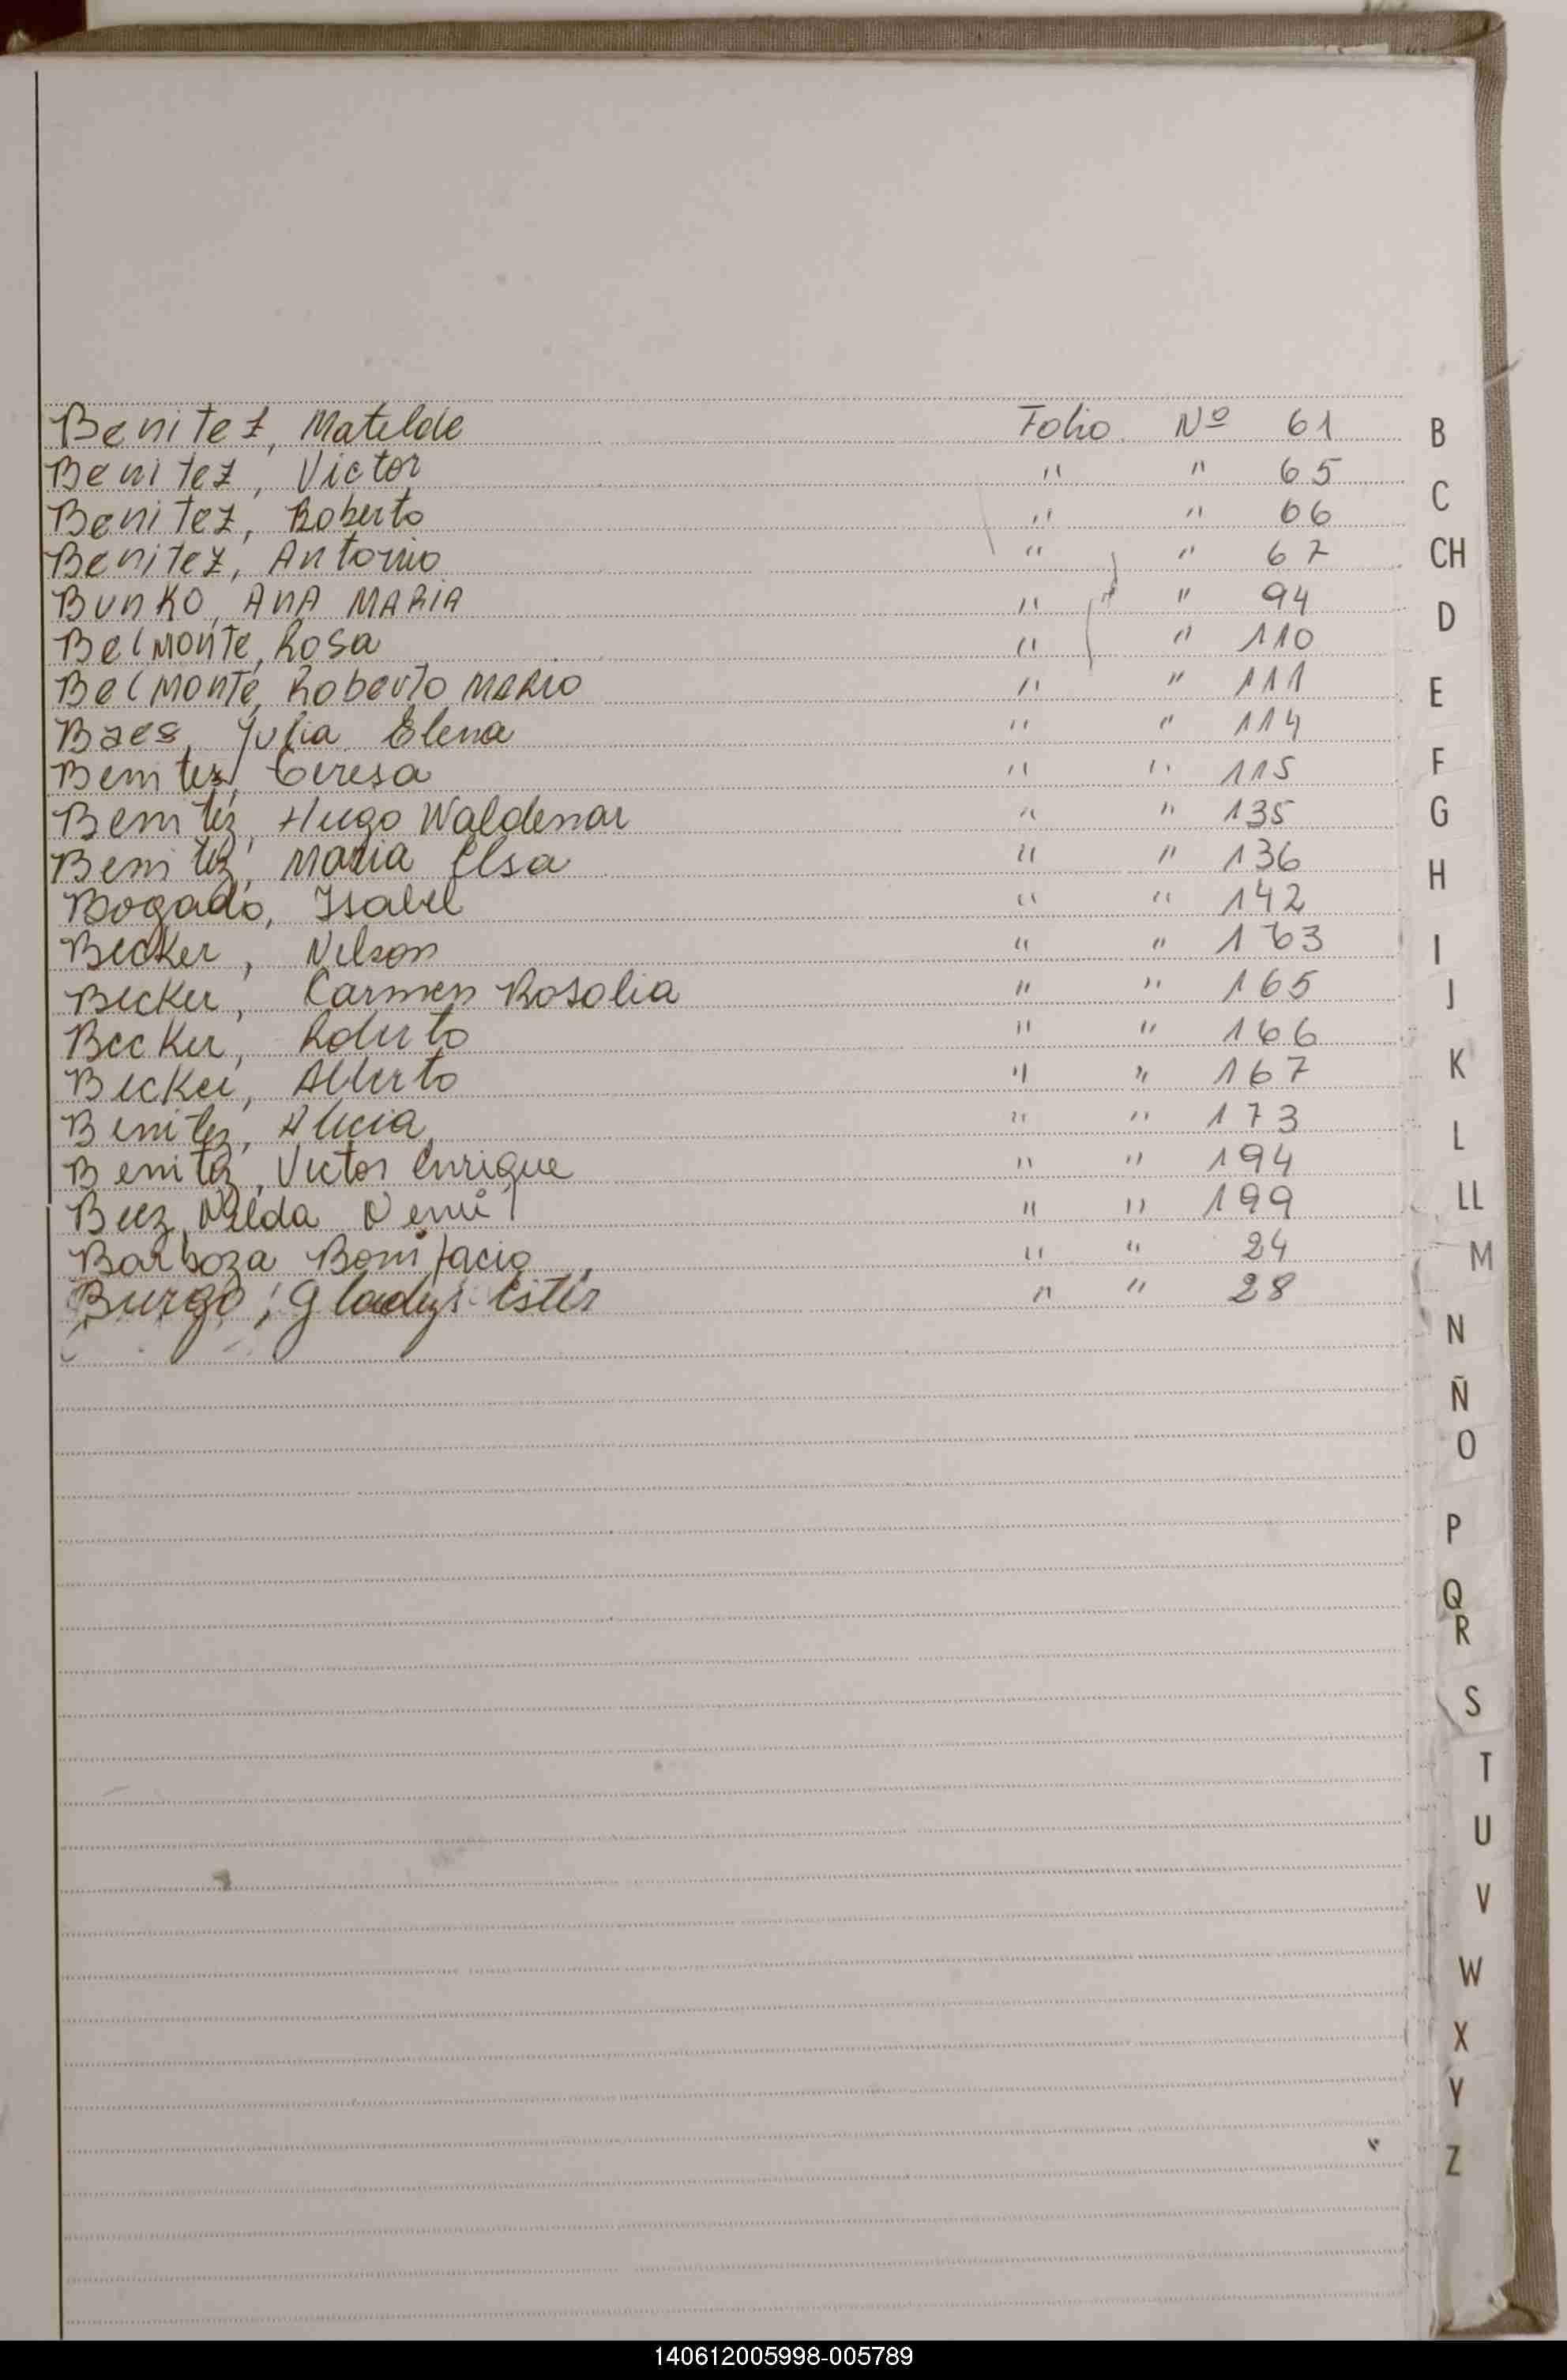 Benitez, Matilde Folio Nº 61
Benitez, Victor " " 65
Benitez, Roberto " " 66
Benitez, Antonio " " 67
Bunko, Ana Maria " " 94
Belmonte, Rosa " " 110
Belmonte, Roberto Mario " " 111
Baes, Julia Elena " " 114
Benitez, Teresa " " 115
Benitez, Hugo Waldemar " " 135
Benitez, Maria Elsa " " 136
Bogado, Isabel " " 142
Becker, Nelson " " 163
Becker, Carmen Rosalia " " 165
Becker, Roberto " " 166
Becker, Alberto " " 167
Benitez, Alicia " " 173
Benitez, Victor Enrique " " 194
Baez, Nilda " " 199
Barboza Bonifacio " " 24
Burgo, Gladys Ester " " 28
B
C
CH
D
E
F
G
H
I
J
K
L
LL
M
N
Ñ
O
P
Q
R
S
T
U
V
W
X
Y
Z
140612005998-005789